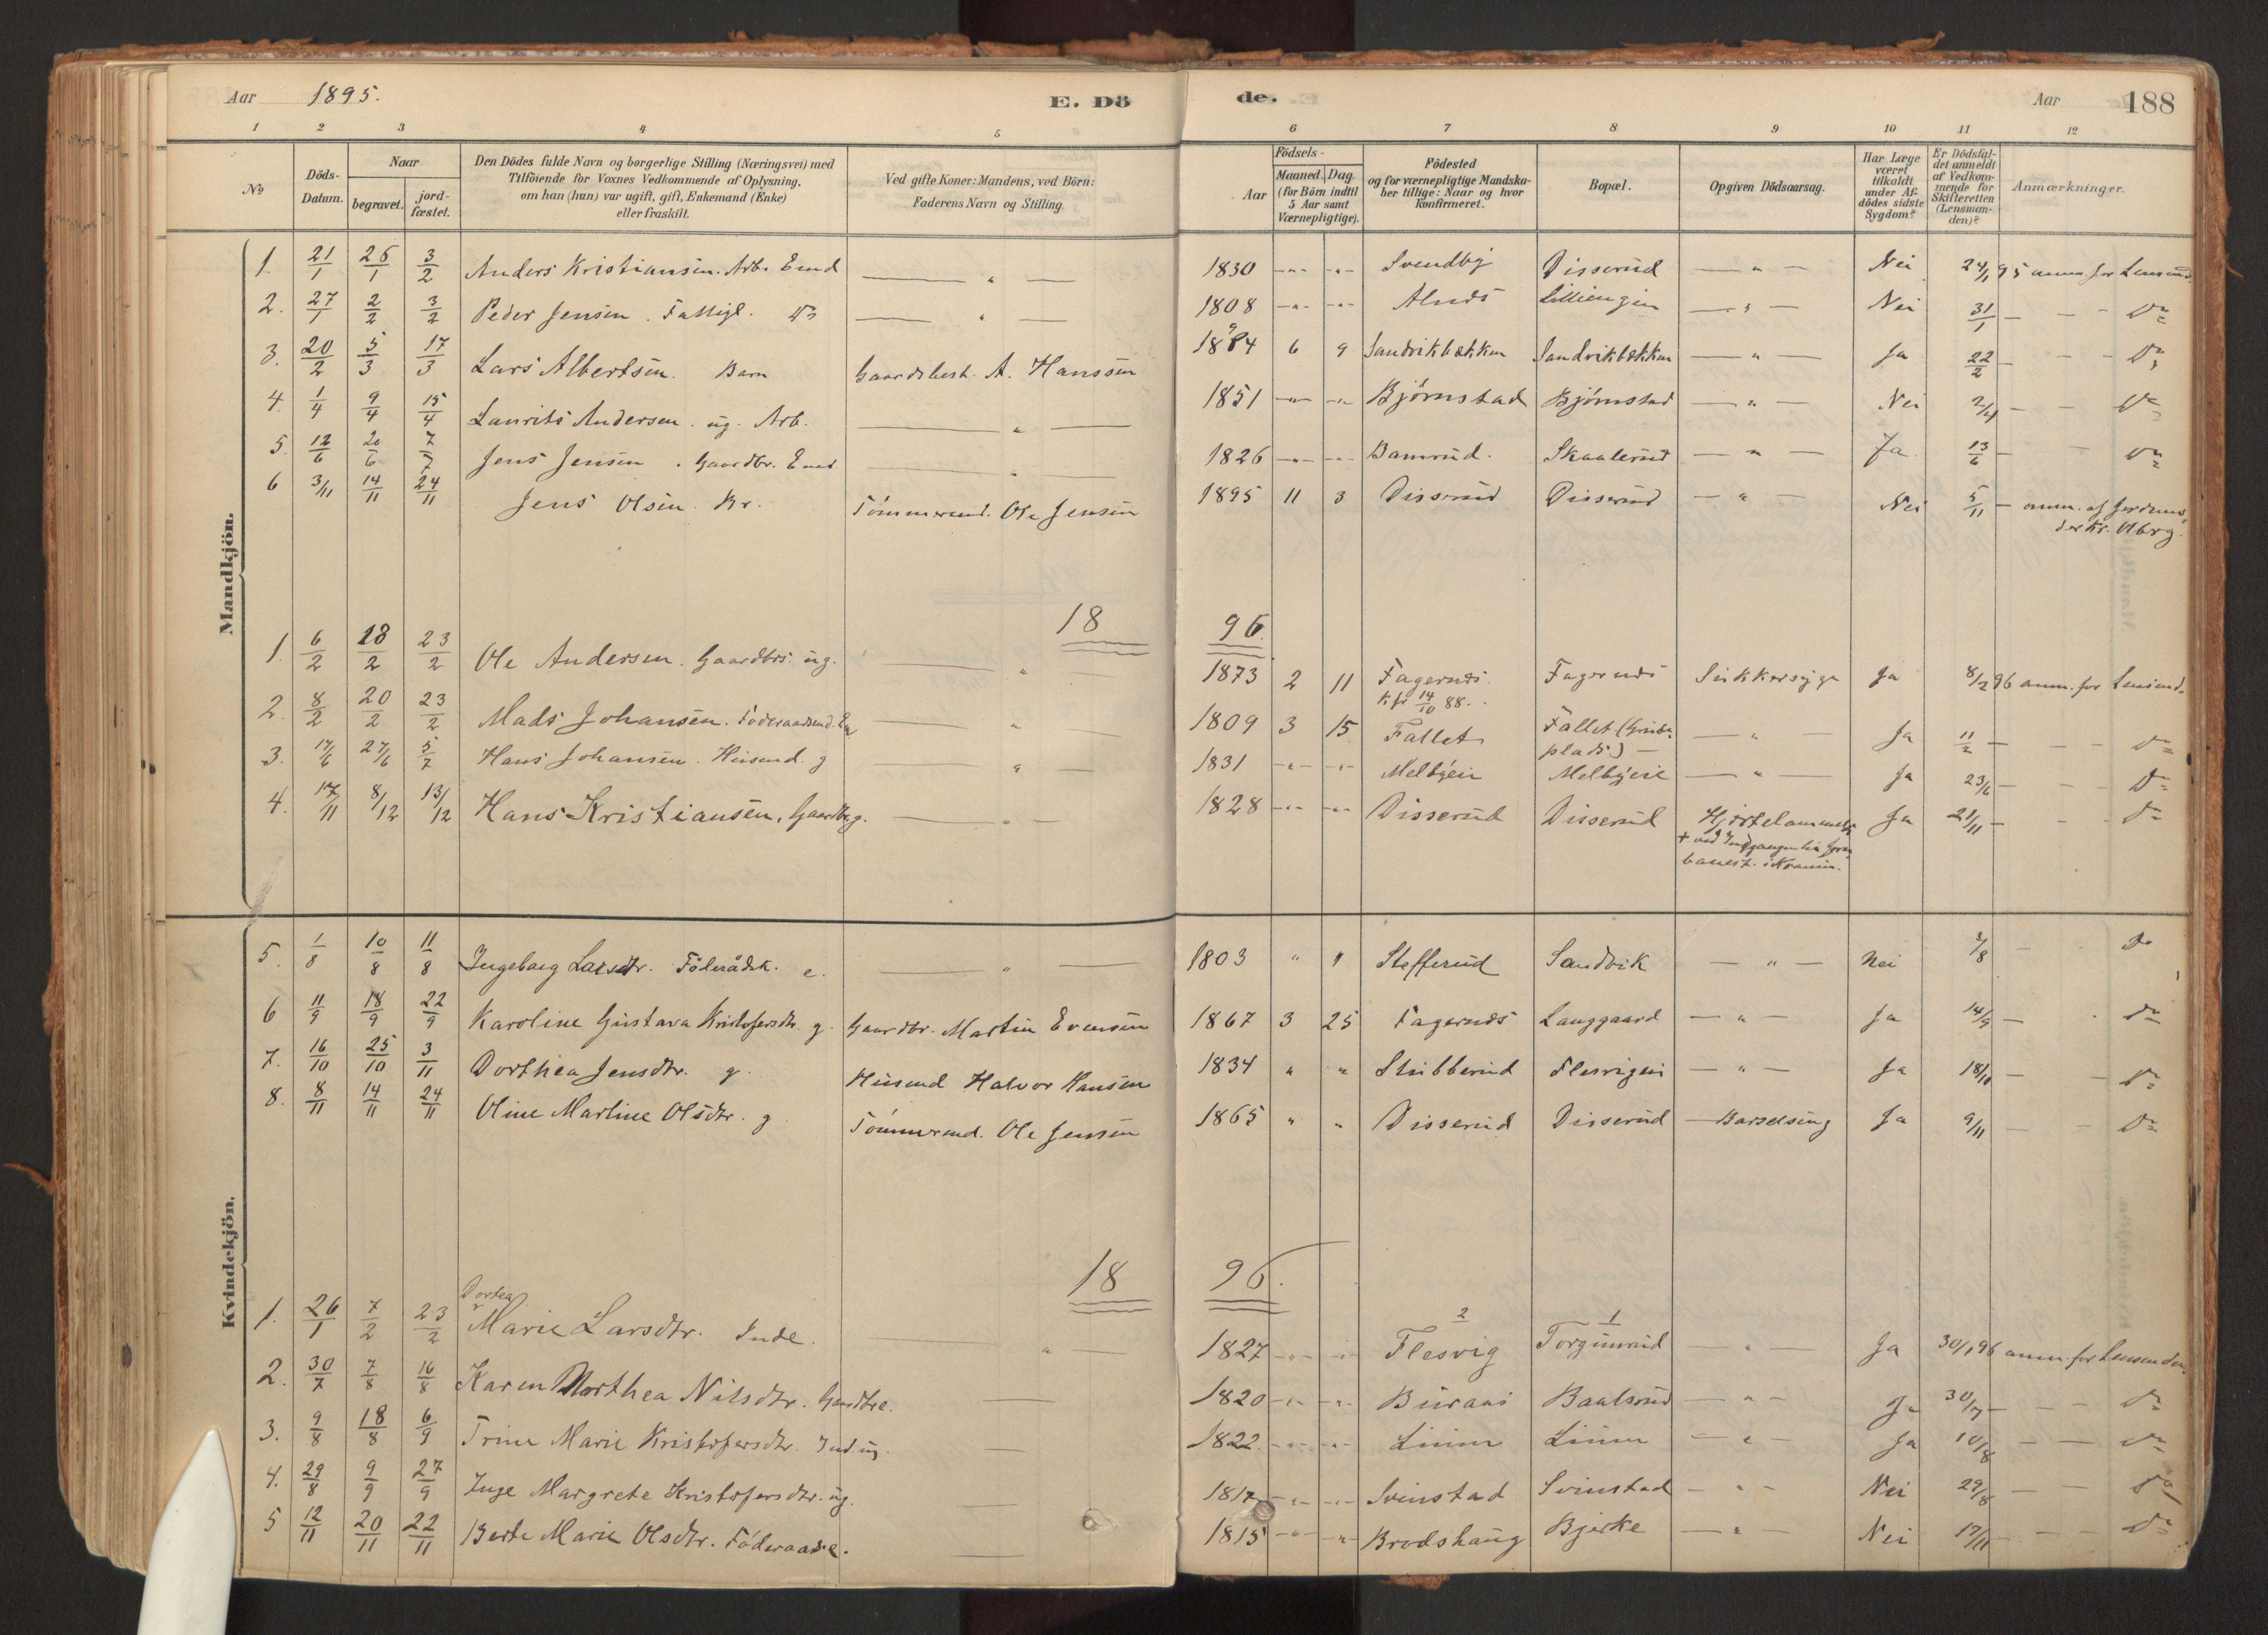 Aar 1895. E. Dö de. Aar 188
1 2 3 4 5 6 7 8 9 10 11 12
No
Döds-Datum.
Naar
begravet.
jord-fæstet.
Den Dödes fulde Navn og borgerlige Stilling (Næringsvei) med
Tilföiende for Voxnes Vedkommende af Oplysning,
om han (hun) var ugift, gift, Enkemand (Enke)
eller fraskilt.
Ved gifte Koner: Mandens, ved Börn:
Faderens Navn og Stilling.
Födsels-
Aar
Maaned. Dag.
(for Börn indtil
5 Aar samt
Værnepligtige).
Födested
og for værnepligtige Mandska-
ber tillige: Naar og hvor
Konfirmeret.
Bopæl.
Opgiven Dödsaarsag.
Har Læge
været
tilkaldt
under Af-
dödes sidste
Sygdom?
Er Dödsfal-
det anmeldt
af Vedkom-
mende for
Skifteretten
(Lensman-
den)?
Anmærkninger.
Mandkjön.
1. 21/1 26/1 3/2 Anders Kristiansen. Arb. Emd — " — 1830 -"- -"- Svendby Disserud — " — Nei 24/1 95 anm. for Lensmd.
2. 27/1 2/2 3/2 Peder Jensen. Fattigl. Do — " — 1808 -"- -"- Alnæs Lilleengen — " — Nei 31/1 — - - Do
3. 20/2 5/3 17/3 Lars Albertsen. Barn Gaardbest. A. Hanssen 1894 6 9 Sandvikbækken Sandvikbækken — " — Ja 22/2 — - - Do
4. 1/4 9/4 15/4 Laurits Andersen. ug. Arb. — " — 1851 -"- -"- Bjørnstad Bjørnstad — " — Nei 2/4 — - Do
5. 12/6 20/6 7/7 Jens Jensen. Gaardbr. Emd — " — 1826 -"- -"- Skaalerud — " — Ja 13/6 — - Do
6 3/11 14/11 24/11 Jens Olsen. Br. Tömmermd. Ole Jensen 1895 11 3 Disserud Disserud — " — Nei 5/11 — anm. af
18 96.
1. 6/2 18/2 23/2 Ole Andersen. Gaardbrs. ug. — " — 1873 2 11 Fagernæs. Fagernæs Sukkersyge Ja 8/2 96 anm. for Lensmd.
Kfr 14/10 88.
2. 8/2 20/2 23/2 Mads Johansen. Föderaadsmd. — " — 1809 3 15 Fallet Fallet — " — Ja 11/2 — - - Do
plads) —
3. 17/6 27/6 5/7 Hans Johansen. Husmd. g — " — 1831 -"- -"- Melbyeie Melbyeie — " — Ja 23/6 — - - Do
4. 17/11 8/12 13/12 Hans Kristiansen, Gaardbr. g. — " — 1828 -"- -"- Disserud Disserud Hjertelammelse Ja 21/11 — - - Do
Kvindekjön.
5. 1/8 10/8 11/8 Ingeborg Larsdtr. Föderådsk. e. — " — 1803 " " Stefferud Sandvik — " — Nei 3/8 — - Do
6 11/9 18/9 22/9 Karoline Gustava Kristofersdtr. g. Gaardbr. Martin Evensen 1867 3 25 Fagernæs Langgaard — " — Ja 14/9 — - Do
7. 16/10 25/10 3/11 Dorthea Jensdtr. g. Husmd Halvor Hansen 1834 " " Stubberud — " — Ja 18/10 — - Do
8. 8/11 14/11 24/11 Oline Martine Olsdtr. g Tömmermd. Ole Jensen 1865 " " Disserud Disserud — Barselseng Ja 9/11 — - Do
18 96.
Dortea 2 1
1. 26/1 7/2 23/2 Marie Larsdtr. Inde. — " — 1827 -"- -"- Flesvig Torgunrud — " — Ja 30/1 96 anm. for Lensmden.
2. 30/7 7/8 16/8 Karen Dorthea Nilsdtr. Gaardbr e. — 1820 -"- -"- Buraas Baalsrud — " — Ja 30/7 — - - Do
3. 9/8 18/8 6/9 Trine Marie Kristofersdtr. Ind. ug. — 1822. -"- -"- Linun Linun — " — Ja 10/8 — - Do
4. 29/8 9/9 27/9 Inge Margrete Kristofersdtr. ug. — 1817 -"- -"- Svinstad Svinstad — " — Nei 29/8 — - Do
5 12/11 20/11 22/11 Berte Marie Olsdtr. Föderaads. e. — 1815 -"- -"- Brodshaug Bjerke — " — Nei 17/11 — - - Do